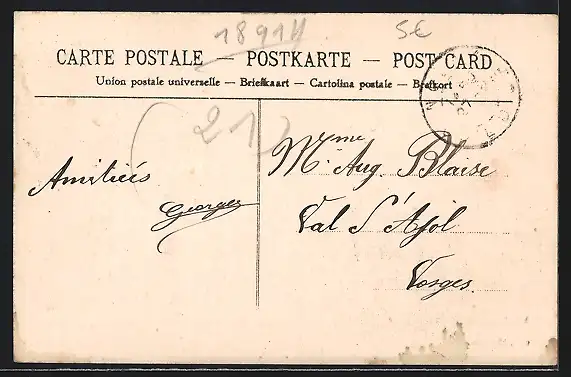 18914 5€
CARTE POSTALE — POSTKARTE — POST CARD
Union postale universelle — Briefkaart — Cartolina postale — Brefkort
(21)
Mme. Aug. Blaise
Amitiés
Georges
Val d'Ajol
Vosges.